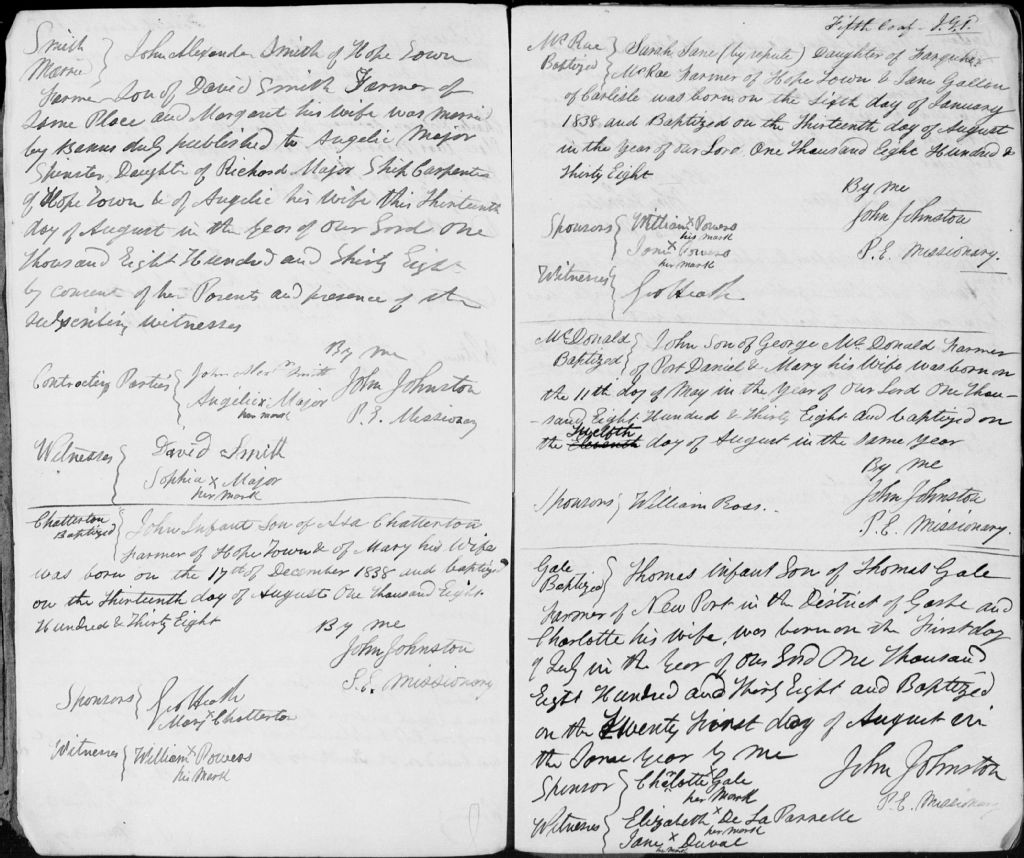 Smith
Married
John Alexander Smith of Hope Town
Farmer Son of David Smith Farmer of
Same Place and Margaret his wife was married
by Banns duly published to Angelic Major
Spinster Daughter of Richard Major Ship Carpenter
of Hope Town & of Angelic his Wife this Thirteenth
day of August in the Year of Our Lord One
Thousand Eight Hundred and Thirty Eight
by consent of her Parents and presence of the
subscribing witnesses
By me
Contracting Parties
John Alexr Smith
John Johnston
Angelic x Major
her mark
P. E. Missionary
Witnesses
David Smith
Sophia x Major
her mark
Chatterton
Baptized
John Infant Son of Asa Chatterton
Farmer of Hope Town & of Mary his Wife
was born on the 17th of December 1838 and baptized
on the Thirteenth day of August One Thousand Eight
Hundred & Thirty Eight
By me
John Johnston
P. E. Missionary
Sponsors
Geo Heath
Mary x Chatterton
Witnesses
William x Powers
his Mark
Fifth J.G.T.
McRae
Baptized
Sarah Jane (by repute) Daughter of Farquhar
McRae Farmer of Hope Town & Jane Gallon
of Carlisle was born on the Fifth day of January
1838 and Baptized on the Thirteenth day of August
in the Year of our Lord One Thousand Eight Hundred &
Thirty Eight
By me
John Johnston
P. E. Missionary.
Sponsors
William x Powers
his mark
x Powers
her mark
Witnesses
Geo Heath
McDonald
Baptized
John Son of George McDonald Farmer
of Port Daniel & Mary his Wife was born on
the 11th day of May in the Year of Our Lord One Thou-
-sand Eight Hundred & Thirty Eight and baptized on
Twelfth
the Eleventh day of August in the same year
By me
John Johnston
P. E. Missionary.
Sponsors
William Ross.
Gale
Baptized
Thomas infant Son of Thomas Gale
Farmer of New Port in the District of Gaspe and
Charlotte his wife, was born on the First day
of July in the Year of Our Lord One Thousand
Eight Hundred and Thirty Eight and Baptized
on the Twenty First day of August in
the Same Year by me
John Johnston
P. E. Missionary
Sponsor
Charlotte x Gale
her Mark
Witnesses
Elizabeth x De La Parrelle
her mark
Jane x Duval
her mark